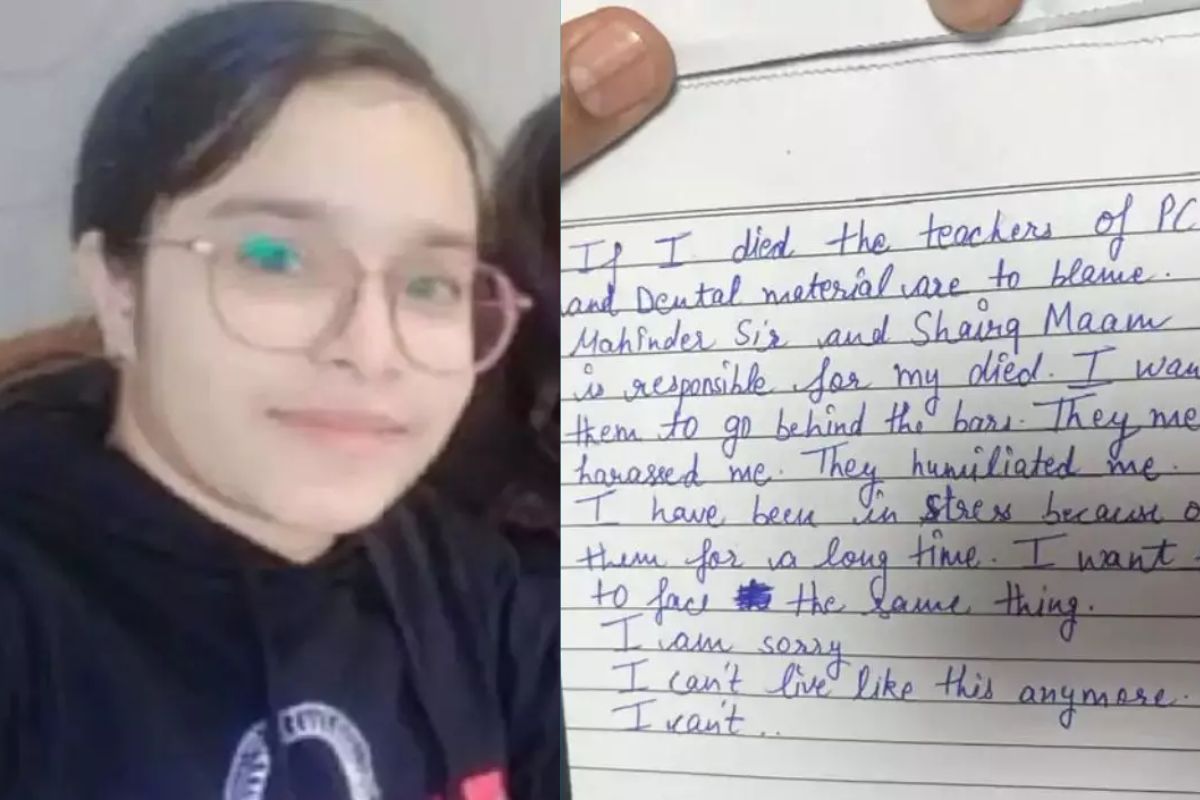 If I died the teachers of PC
and Dental material are to blame.
Mahinder Sir and Shairg Maam
is responsible for my died. I wan
them to go behind the bars. They me
harassed me. They humiliated me.
I have been in stress because o
them for a long time. I want
to face the same thing.
I am sorry
I can't live like this anymore.
I can't..